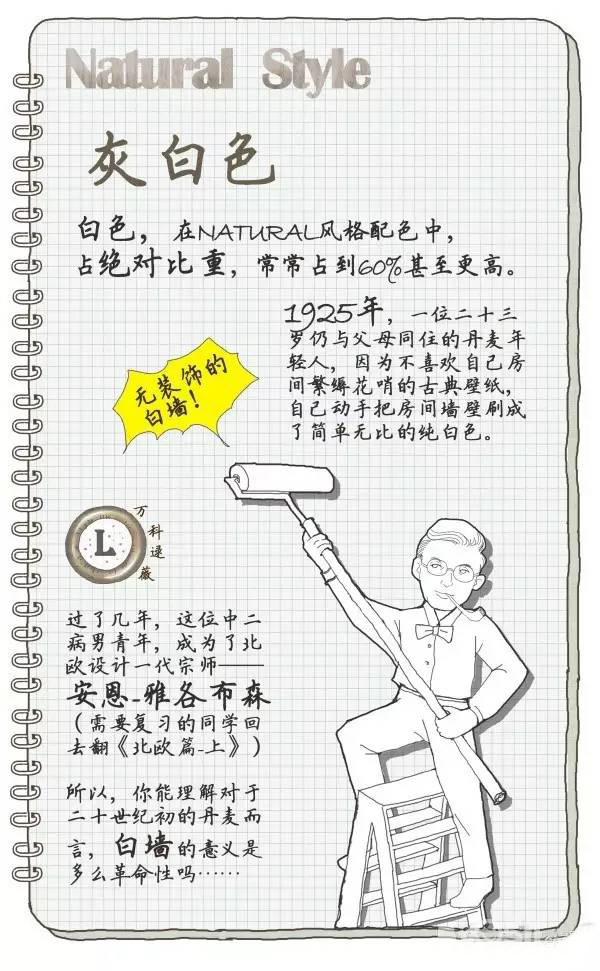 Natural Style
灰白色
白色，在NATURAL风格配色中，
占绝对比重，常常占到60%甚至更高。
1925年，一位二十三
岁仍与父母同住的丹麦年
轻人，因为不喜欢自己房
间繁缛花哨的古典壁纸，
自己动手把房间墙壁刷成
了简单无比的纯白色。
无装饰的
白墙！
L
万科逯薇
过了几年，这位中二
病男青年，成为了北
欧设计一代宗师——
安恩-雅各布森
（需要复习的同学回
去翻《北欧篇-上》）
所以，你能理解对于
二十世纪初的丹麦而
言，白墙的意义是
多么革命性吗……